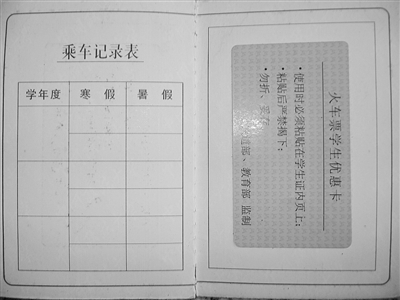 乘车记录表
学年度 寒 假 暑 假
火车票学生优惠卡
·使用时必须粘贴在学生证内页上;
·粘贴后严禁揭下;
·勿折、妥存
道部、教育部 监制